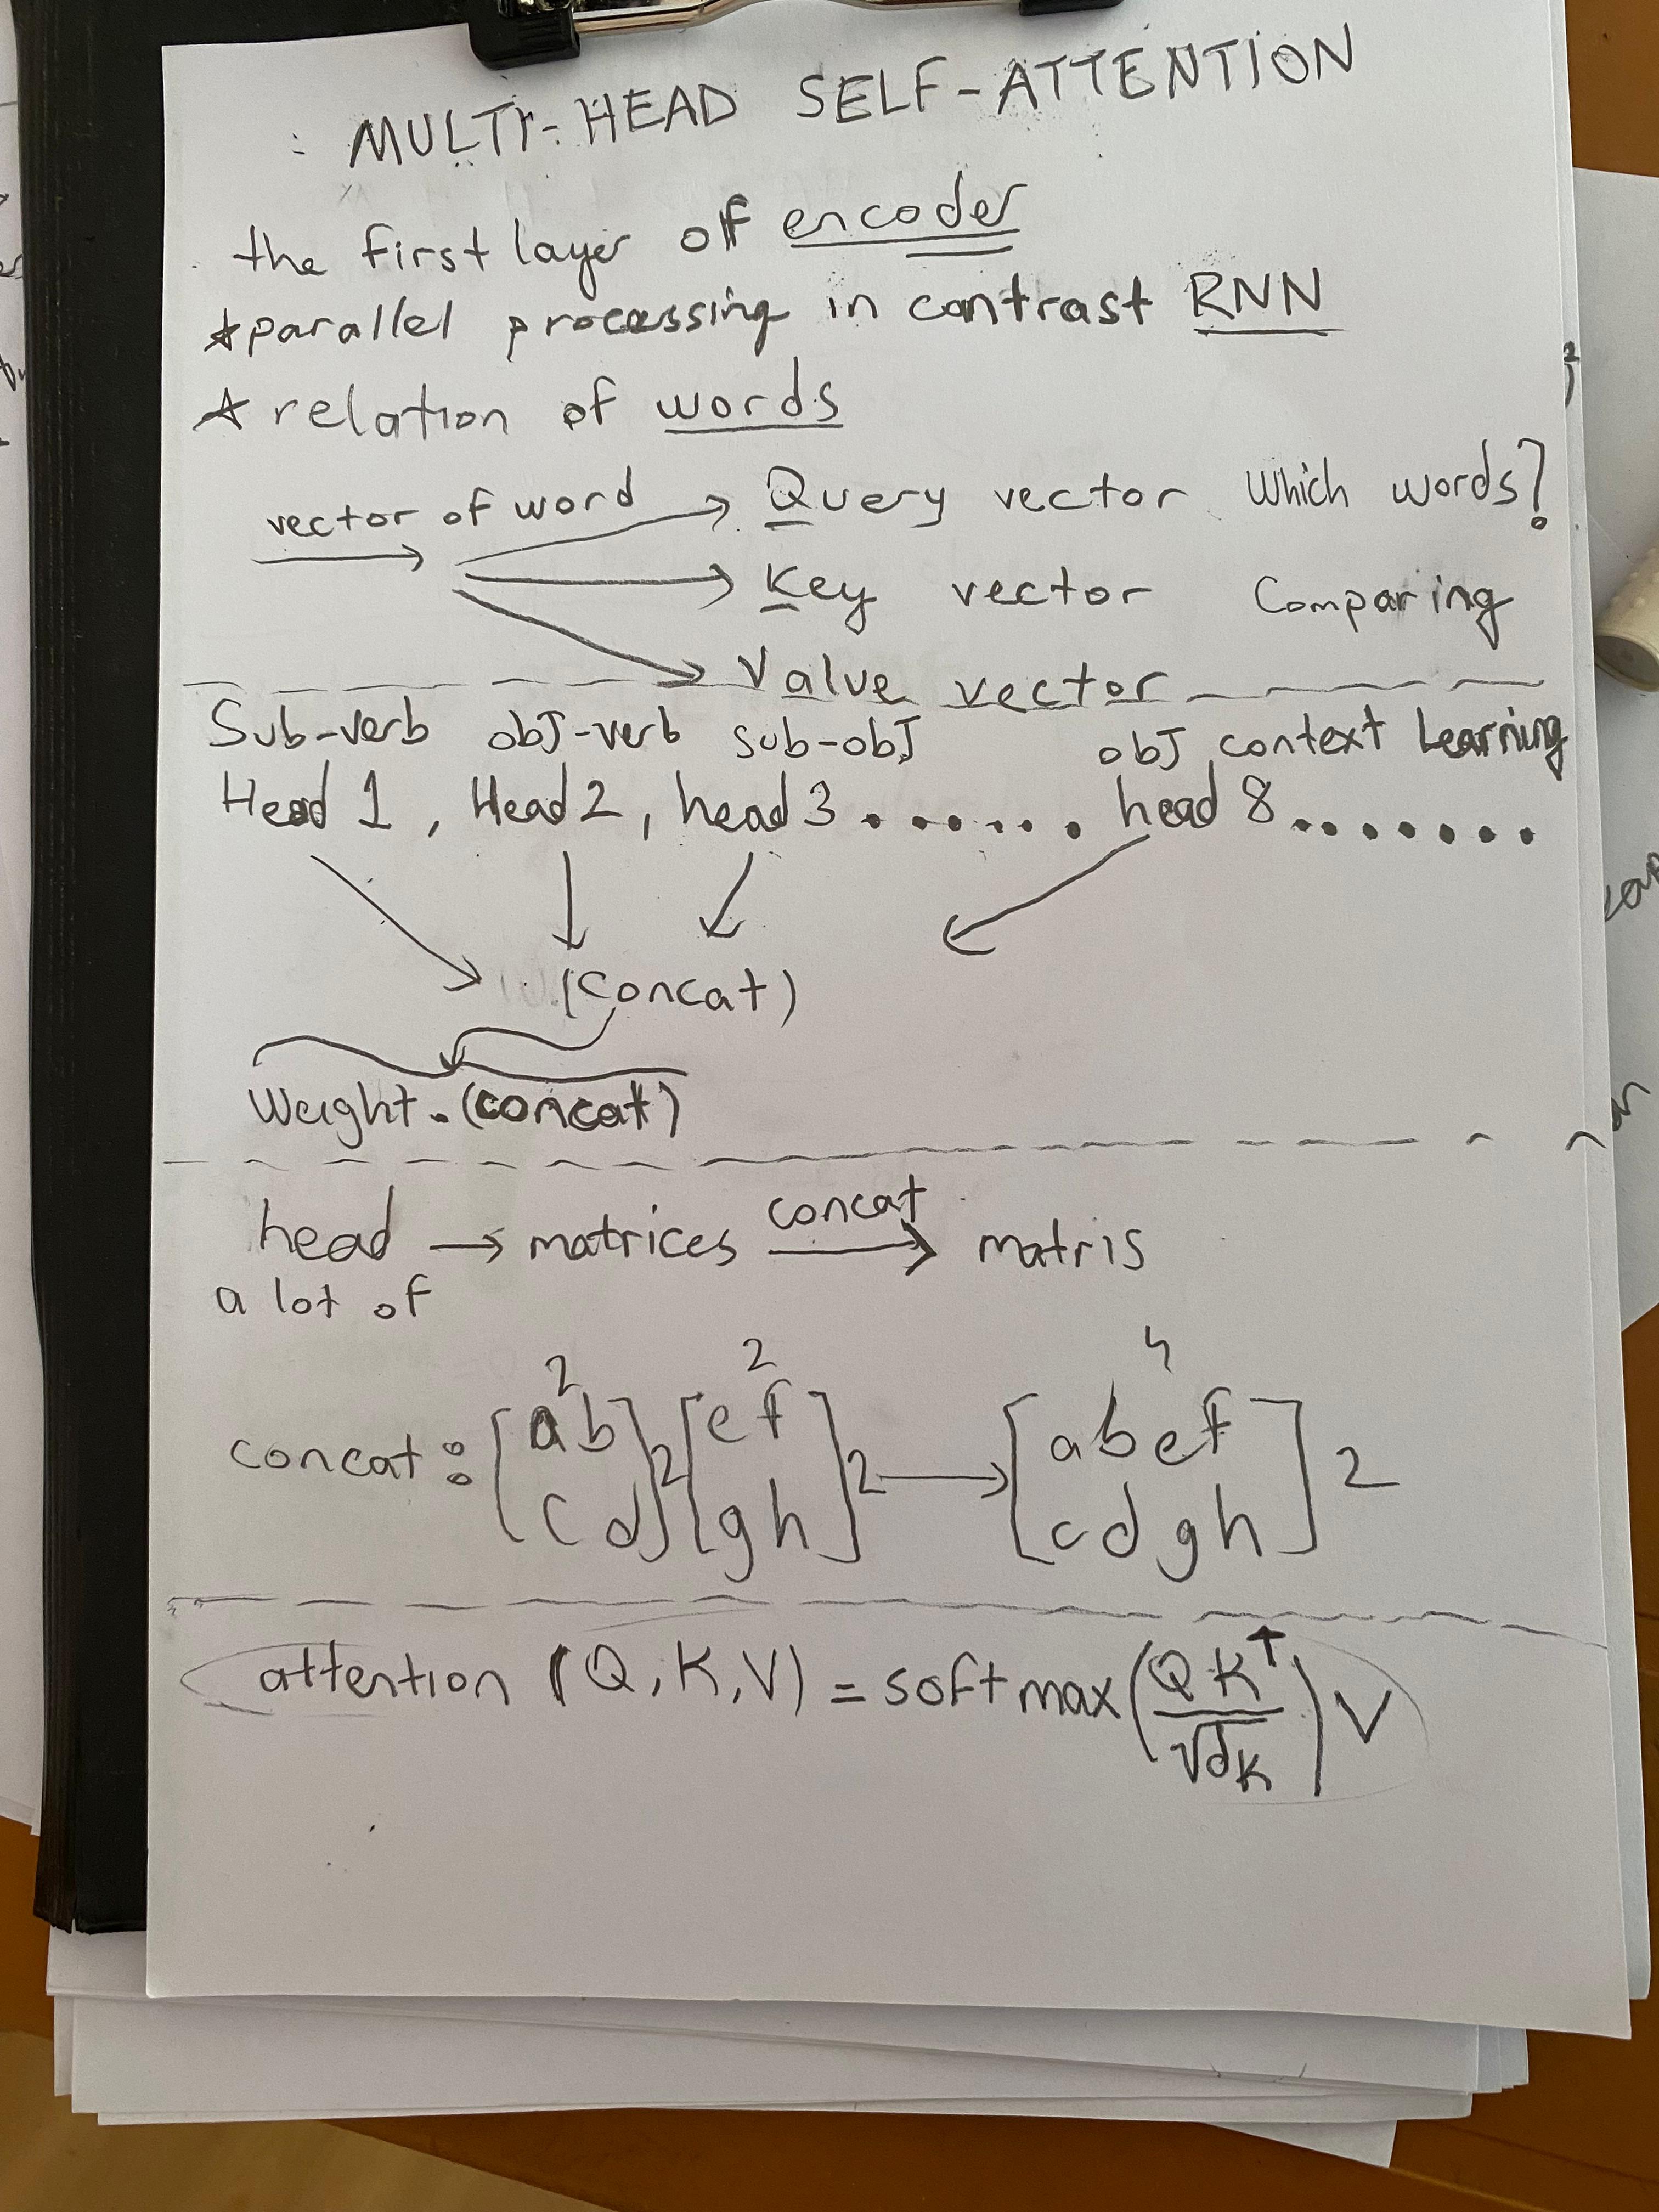 MULTI-HEAD SELF-ATTENTION
the first layer of encoder
* parallel processing in contrast RNN
* relation of words
vector of word → Query vector Which words?
→ Key vector Comparing
→ Value vector
Sub-verb obJ-verb sub-obJ obJ context Learning
Head 1, Head 2, head 3 ....... head 8 .......
(Concat)
Weight.(concat)
head → matrices concat → matris
a lot of
2 2 4
concat: [a b] 2 [e f] 2 → [a b e f] 2
[c d] [g h] [c d g h]
attention (Q, K, V) = softmax(QKᵀ/√dK) V